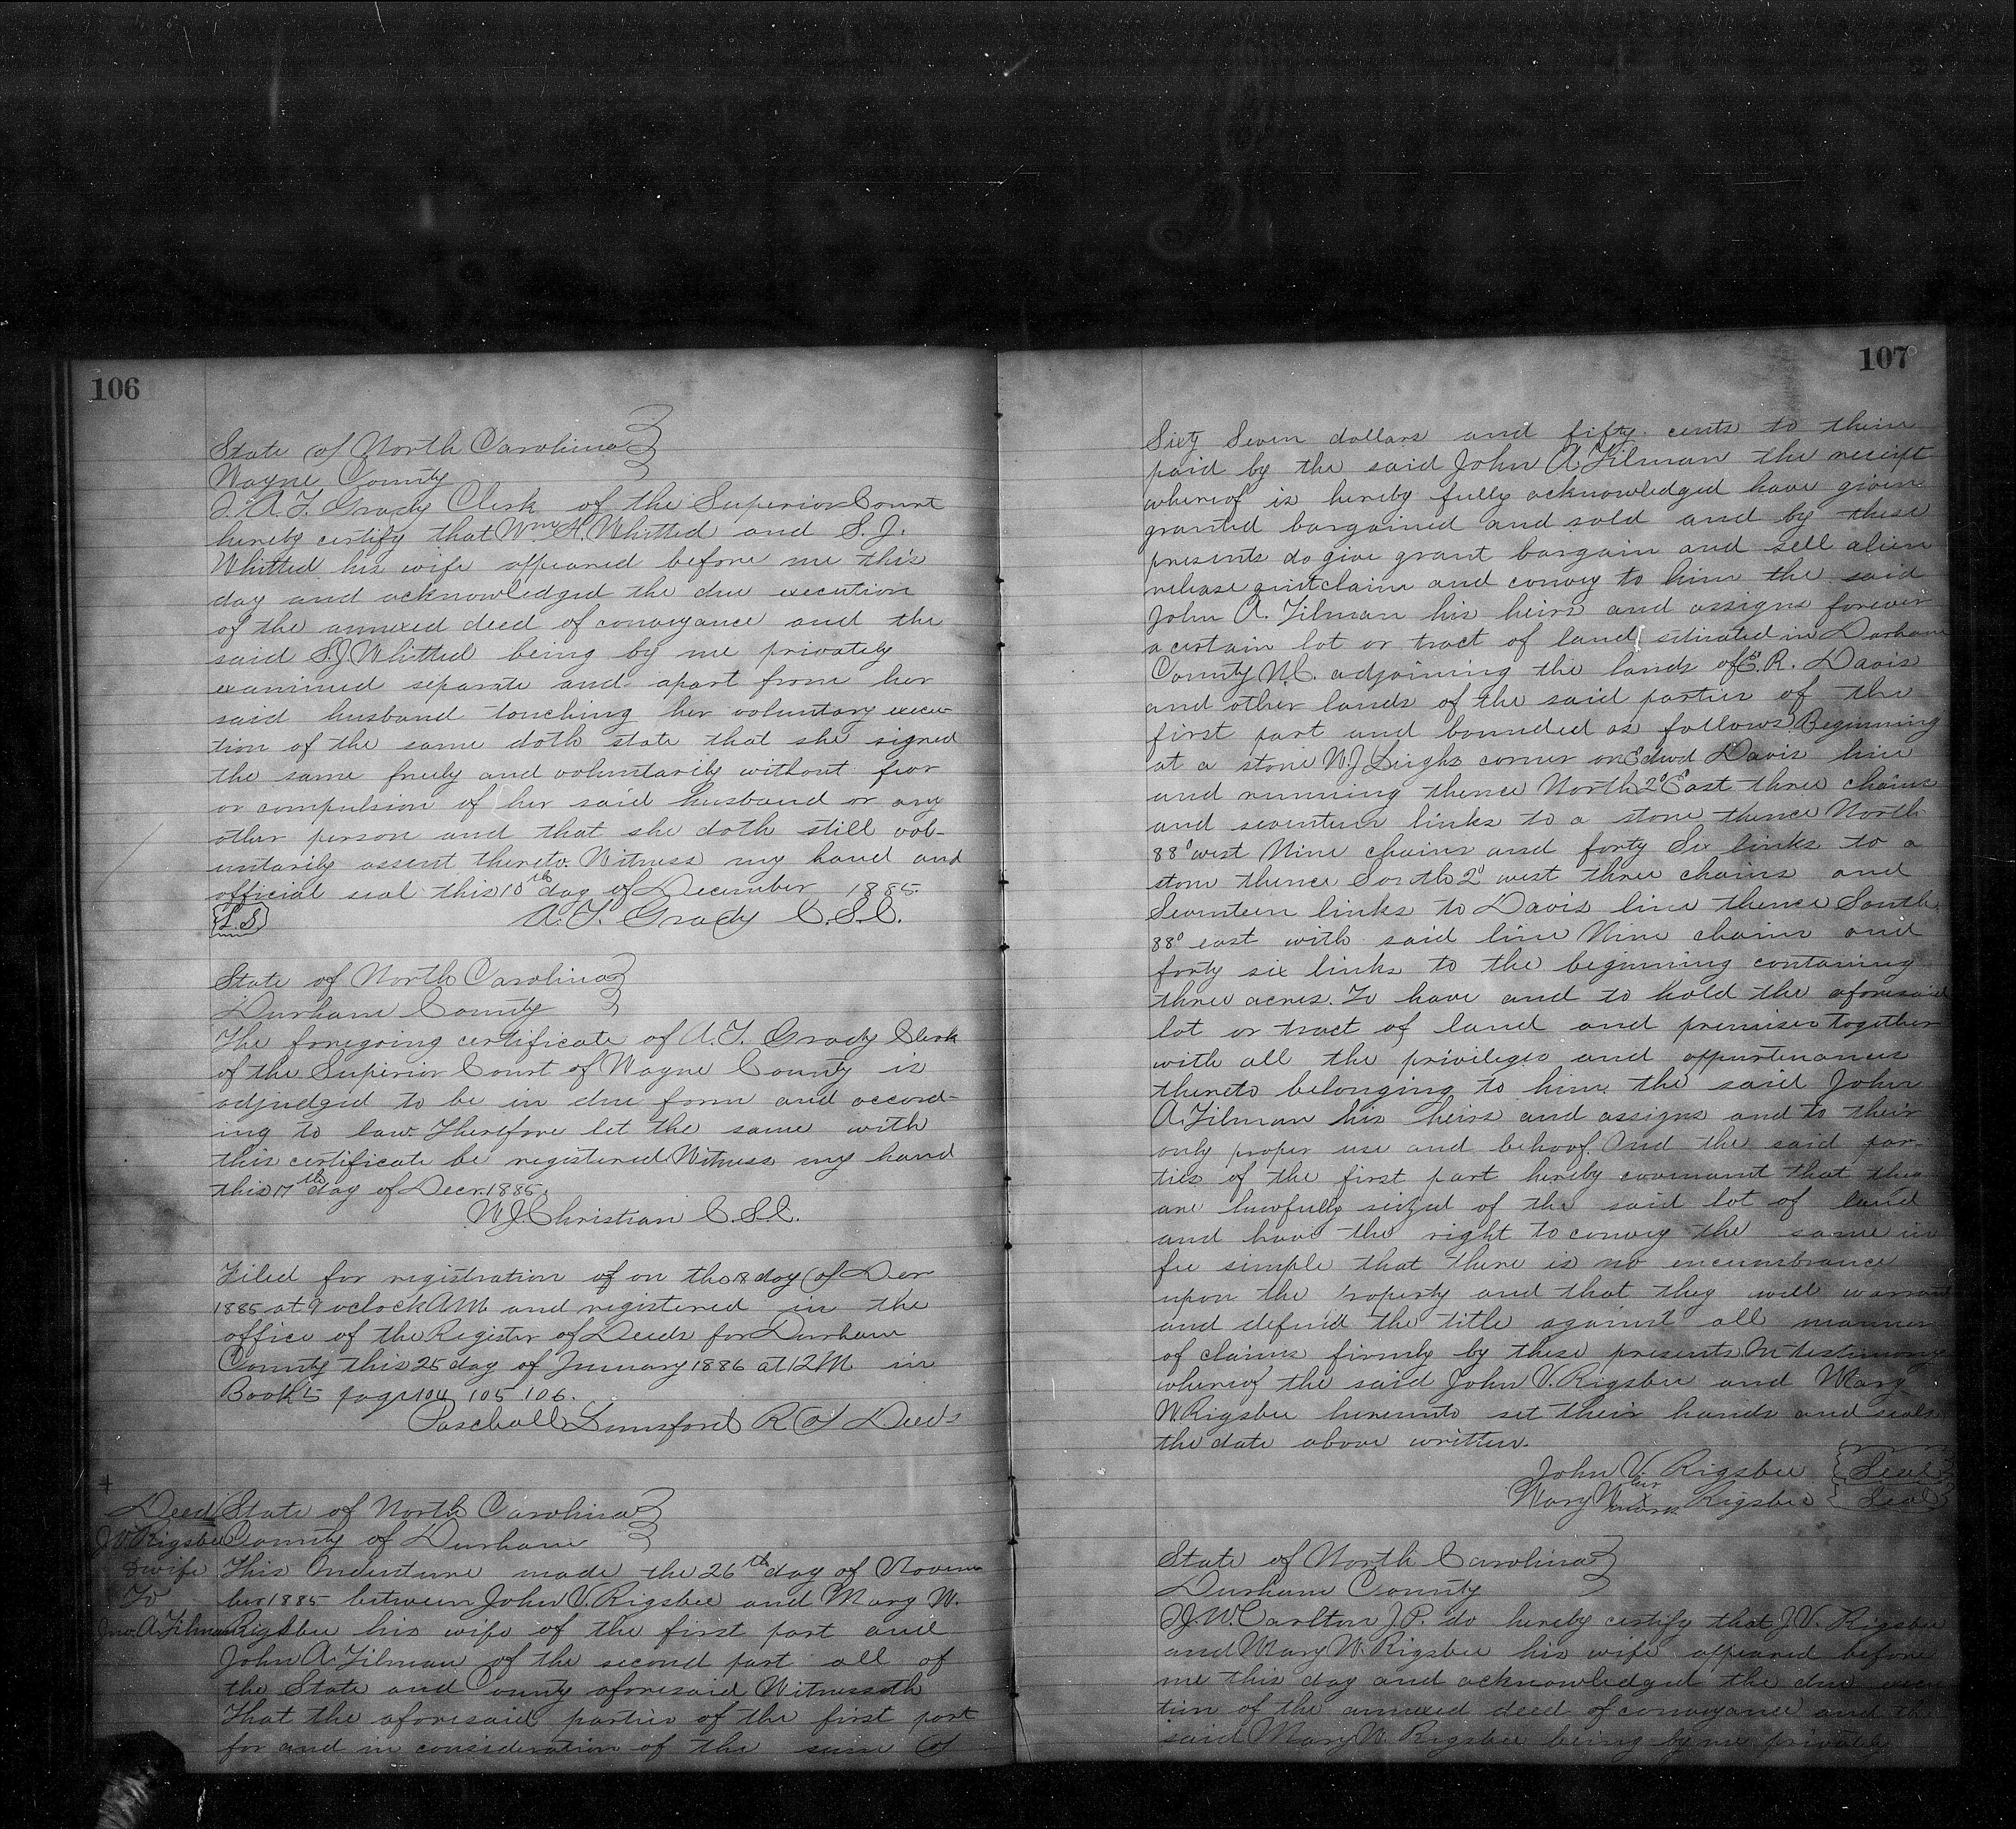 106
State of North Carolina
Wayne County
I A. T. Grady Clerk of the Superior Court
hereby certify that Wm. H. Whitted and S. J.
Whitted his wife appeared before me this
day and acknowledged the due execution
of the annexed deed of conveyance and the
said S. J Whitted being by me privately
examined separate and apart from her
said husband touching her voluntary execu-
tion of the same doth state that she signed
the same freely and voluntarily without fear
or compulsion of her said husband or any
other person and that she doth still vol-
untarily assent thereto. Witness my hand and
official seal this 10th day of December 1885.
{L.S} A. T. Grady C.S.C.
State of North Carolina
Durham County
The foregoing certificate of A. T. Grady Clerk
of the Superior Court of Wayne County is
adjudged to be in due form and accord-
ing to law. Therefore let the same with
this certificate be registered Witness my hand
this 17th day of Decr. 1885.
W. J. Christian C.S.C.
Filed for registration of on the 18 day of Decr
1885 at 9 oclock AM and registered in the
office of the Register of Deeds for Durham
County this 25 day of January 1886 at 12 M in
Book 5 page 104 105 106.
Paschall Lunsford R of Deeds
Deed
J V. Rigsbee
& wife
To
Jno. A. Tilman
State of North Carolina
County of Durham
This Indenture made the 26th day of Novem
ber 1885 between John V. Rigsbee and Mary W.
Rigsbee his wife of the first part and
John A. Tilman of the second part all of
the State and County aforesaid Witnesseth
That the aforesaid parties of the first part
for and in consideration of the sum of
107
Sixty Seven dollars and fifty cents to them
paid by the said John A. Tilman the receipt
whereof is hereby fully acknowledged have given
granted bargained and sold and by these
presents do give grant bargain and sell alien
release quitclaim and convey to him the said
John A. Tilman his heirs and assigns forever
a certain lot or tract of land situated in Durham
County N.C. adjoining the lands of E. R. Davis
and other lands of the said parties of the
first part and bounded as follows. Beginning
at a stone W. J Leighs corner on Edwd Davis line
and running thence North 2° East three chains
and seventeen links to a stone thence North
88° west Nine chains and forty Six links to a
stone thence South 2° west three chains and
Seventeen links to Davis line thence South
88° east with said line Nine chains and
forty six links to the beginning containing
three acres. To have and to hold the aforesaid
lot or tract of land and premises together
with all the privileges and appurtenances
thereto belonging to him the said John
A. Tilman his heirs and assigns and to their
only proper use and behoof. And the said par-
ties of the first part hereby covenant that they
are lawfully seized of the said lot of land
and have the right to convey the same in
fee simple that there is no encumbrance
upon the property and that they will warrant
and defend the title against all manner
of claims firmly by these presents In testimony
whereof the said John V. Rigsbee and Mary
W. Rigsbee hereunto set their hands and seals
the date above written.
John V. Rigsbee {Seal}
Mary W. her X mark Rigsbee {Seal}
State of North Carolina
Durham County
I J. W. Carlton J.P. do hereby certify that J. V. Rigsbee
and Mary W. Rigsbee his wife appeared before
me this day and acknowledged the due execu
tion of the annexed deed of conveyance and the
said Mary W. Rigsbee being by me privately